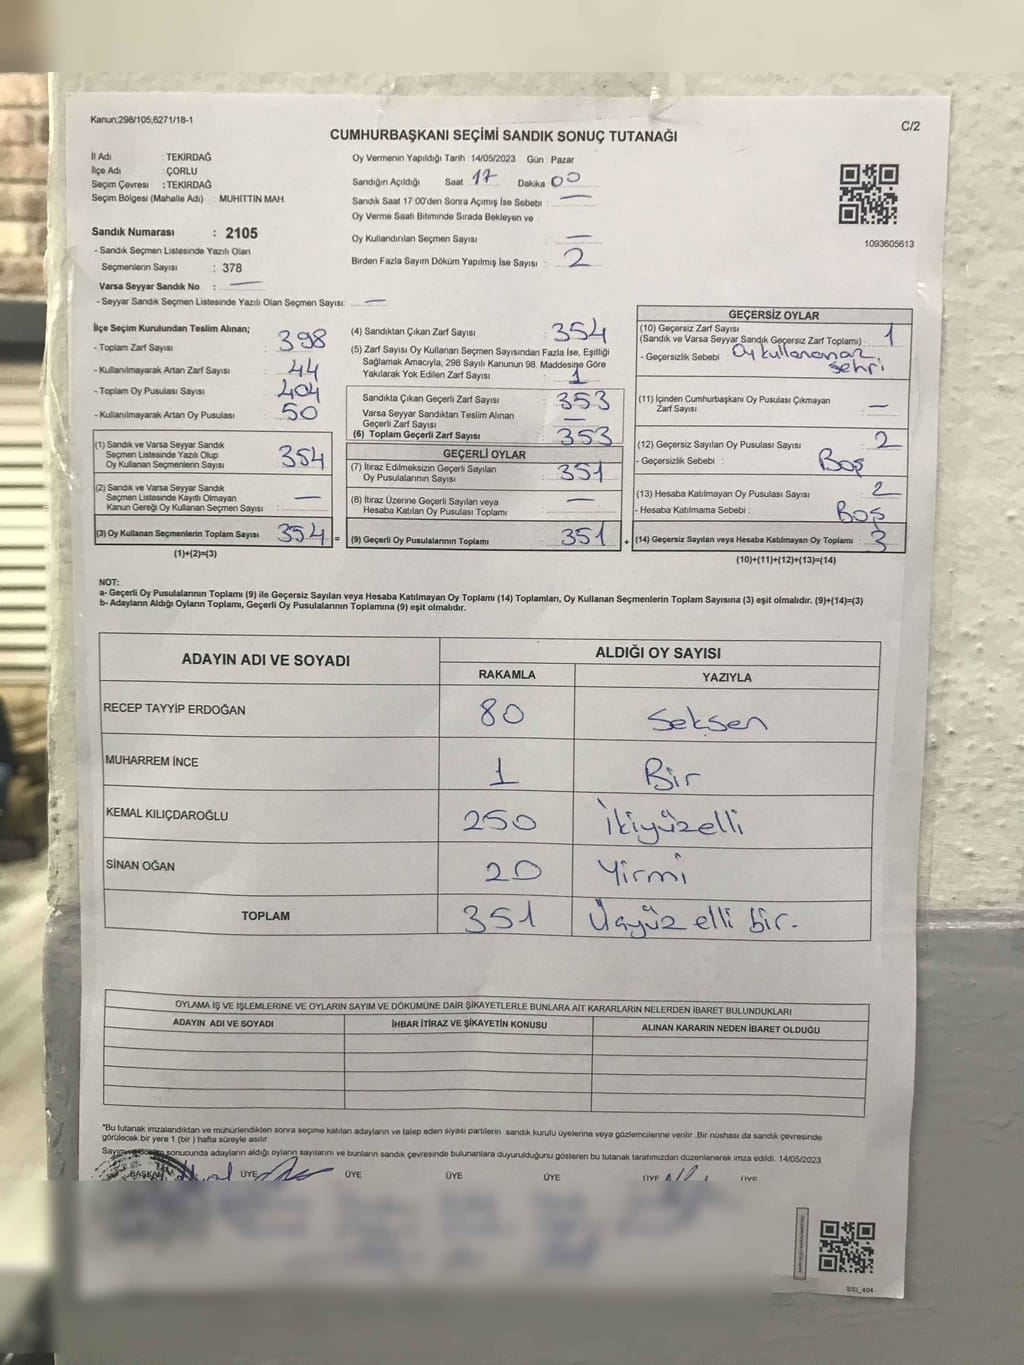 Kanun;298/105;6271/18-1
C/2
CUMHURBAŞKANI SEÇİMİ SANDIK SONUÇ TUTANAĞI
İl Adı : TEKİRDAĞ
İlçe Adı : ÇORLU
Seçim Çevresi : TEKİRDAĞ
Seçim Bölgesi (Mahalle Adı) : MUHİTTİN MAH.
Sandık Numarası : 2105
- Sandık Seçmen Listesinde Yazılı Olan
Seçmenlerin Sayısı : 378
Varsa Seyyar Sandık No : —
- Seyyar Sandık Seçmen Listesinde Yazılı Olan Seçmen Sayısı: —
Oy Vermenin Yapıldığı Tarih 14/05/2023 Gün : Pazar
Sandığın Açıldığı Saat 17 Dakika 00
Sandık Saat 17:00'den Sonra Açımış İse Sebebi : —
Oy Verme Saati Bitiminde Sırada Bekleyen ve
Oy Kullandırılan Seçmen Sayısı : —
Birden Fazla Sayım Döküm Yapılmış İse Sayısı : 2
1093605613
İlçe Seçim Kurulundan Teslim Alınan;
- Toplam Zarf Sayısı : 398
- Kullanılmayarak Artan Zarf Sayısı : 44
- Toplam Oy Pusulası Sayısı : 404
- Kullanılmayarak Artan Oy Pusulası : 50
(1) Sandık ve Varsa Seyyar Sandık
Seçmen Listesinde Yazılı Olup
Oy Kullanan Seçmenlerin Sayısı : 354
(2) Sandık ve Varsa Seyyar Sandık
Seçmen Listesinde Kayıtlı Olmayan
Kanun Gereği Oy Kullanan Seçmen Sayısı : —
(3) Oy Kullanan Seçmenlerin Toplam Sayısı : 354 =
(1)+(2)=(3)
(4) Sandıktan Çıkan Zarf Sayısı : 354
(5) Zarf Sayısı Oy Kullanan Seçmen Sayısından Fazla İse, Eşitliği
Sağlamak Amacıyla, 298 Sayılı Kanunun 98. Maddesine Göre
Yakılarak Yok Edilen Zarf Sayısı : 1
Sandıkta Çıkan Geçerli Zarf Sayısı : 353
Varsa Seyyar Sandıktan Teslim Alınan
Geçerli Zarf Sayısı : —
(6) Toplam Geçerli Zarf Sayısı : 353
GEÇERLİ OYLAR
(7) İtiraz Edilmeksizin Geçerli Sayılan
Oy Pusulalarının Sayısı : 351
(8) İtiraz Üzerine Geçerli Sayılan veya
Hesaba Katılan Oy Pusulası Toplamı : —
(9) Geçerli Oy Pusulalarının Toplamı : 351 +
GEÇERSİZ OYLAR
(10) Geçersiz Zarf Sayısı
(Sandık ve Varsa Seyyar Sandık Geçersiz Zarf Toplamı) : 1
- Geçersizlik Sebebi : Oy kullanamaz
şehri
(11) İçinden Cumhurbaşkanı Oy Pusulası Çıkmayan
Zarf Sayısı : —
(12) Geçersiz Sayılan Oy Pusulası Sayısı : 2
- Geçersizlik Sebebi : Boş
(13) Hesaba Katılmayan Oy Pusulası Sayısı : 2
- Hesaba Katılmama Sebebi : Boş
(14) Geçersiz Sayılan veya Hesaba Katılmayan Oy Toplamı : 3
(10)+(11)+(12)+(13)=(14)
NOT:
a- Geçerli Oy Pusulalarının Toplamı (9) ile Geçersiz Sayılan veya Hesaba Katılmayan Oy Toplamı (14) Toplamları, Oy Kullanan Seçmenlerin Toplam Sayısına (3) eşit olmalıdır. (9)+(14)=(3)
b- Adayların Aldığı Oyların Toplamı, Geçerli Oy Pusulalarının Toplamına (9) eşit olmalıdır.
ADAYIN ADI VE SOYADI ALDIĞI OY SAYISI
RAKAMLA YAZIYLA
RECEP TAYYİP ERDOĞAN 80 Seksen
MUHARREM İNCE 1 Bir
KEMAL KILIÇDAROĞLU 250 İkiyüzelli
SİNAN OĞAN 20 Yirmi
TOPLAM 351 Üçyüz elli bir.
OYLAMA İŞ VE İŞLEMLERİNE VE OYLARIN SAYIM VE DÖKÜMÜNE DAİR ŞİKAYETLERLE BUNLARA AİT KARARLARIN NELERDEN İBARET BULUNDUKLARI
ADAYIN ADI VE SOYADI İHBAR İTİRAZ VE ŞİKAYETİN KONUSU ALINAN KARARIN NEDEN İBARET OLDUĞU
*Bu tutanak imzalandıktan ve mühürlendikten sonra seçime katılan adayların ve talep eden siyasi partilerin sandık kurulu üyelerine veya gözlemcilerine verilir. Bir nüshası da sandık çevresinde
görülecek bir yere 1 (bir) hafta süreyle asılır.
sonucunda adayların aldığı oyların sayılarını ve bunların sandık çevresinde bulunanlara duyurulduğunu gösteren bu tutanak tarafımızdan düzenlenerek imza edildi. 14/05/2023
BAŞKAN ÜYE ÜYE ÜYE ÜYE ÜYE ÜYE
SSİ_404